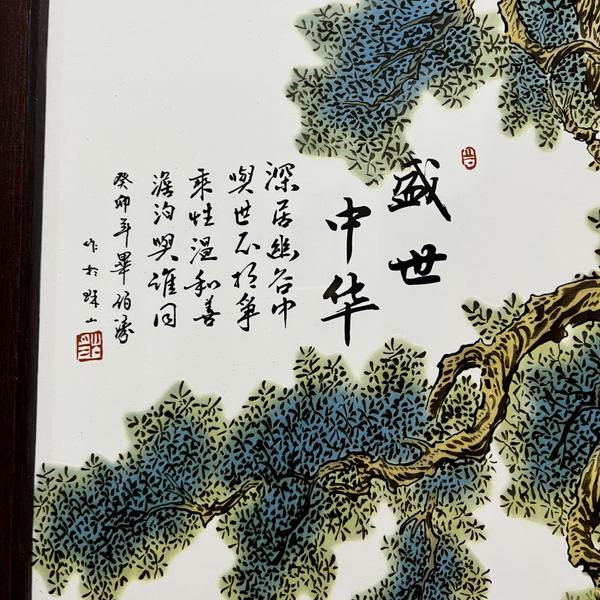 盛世
中华
深居幽谷中
与世不相争
乘性温和善
淡泊与谁同
癸卯年毕伯涛
作於珠山